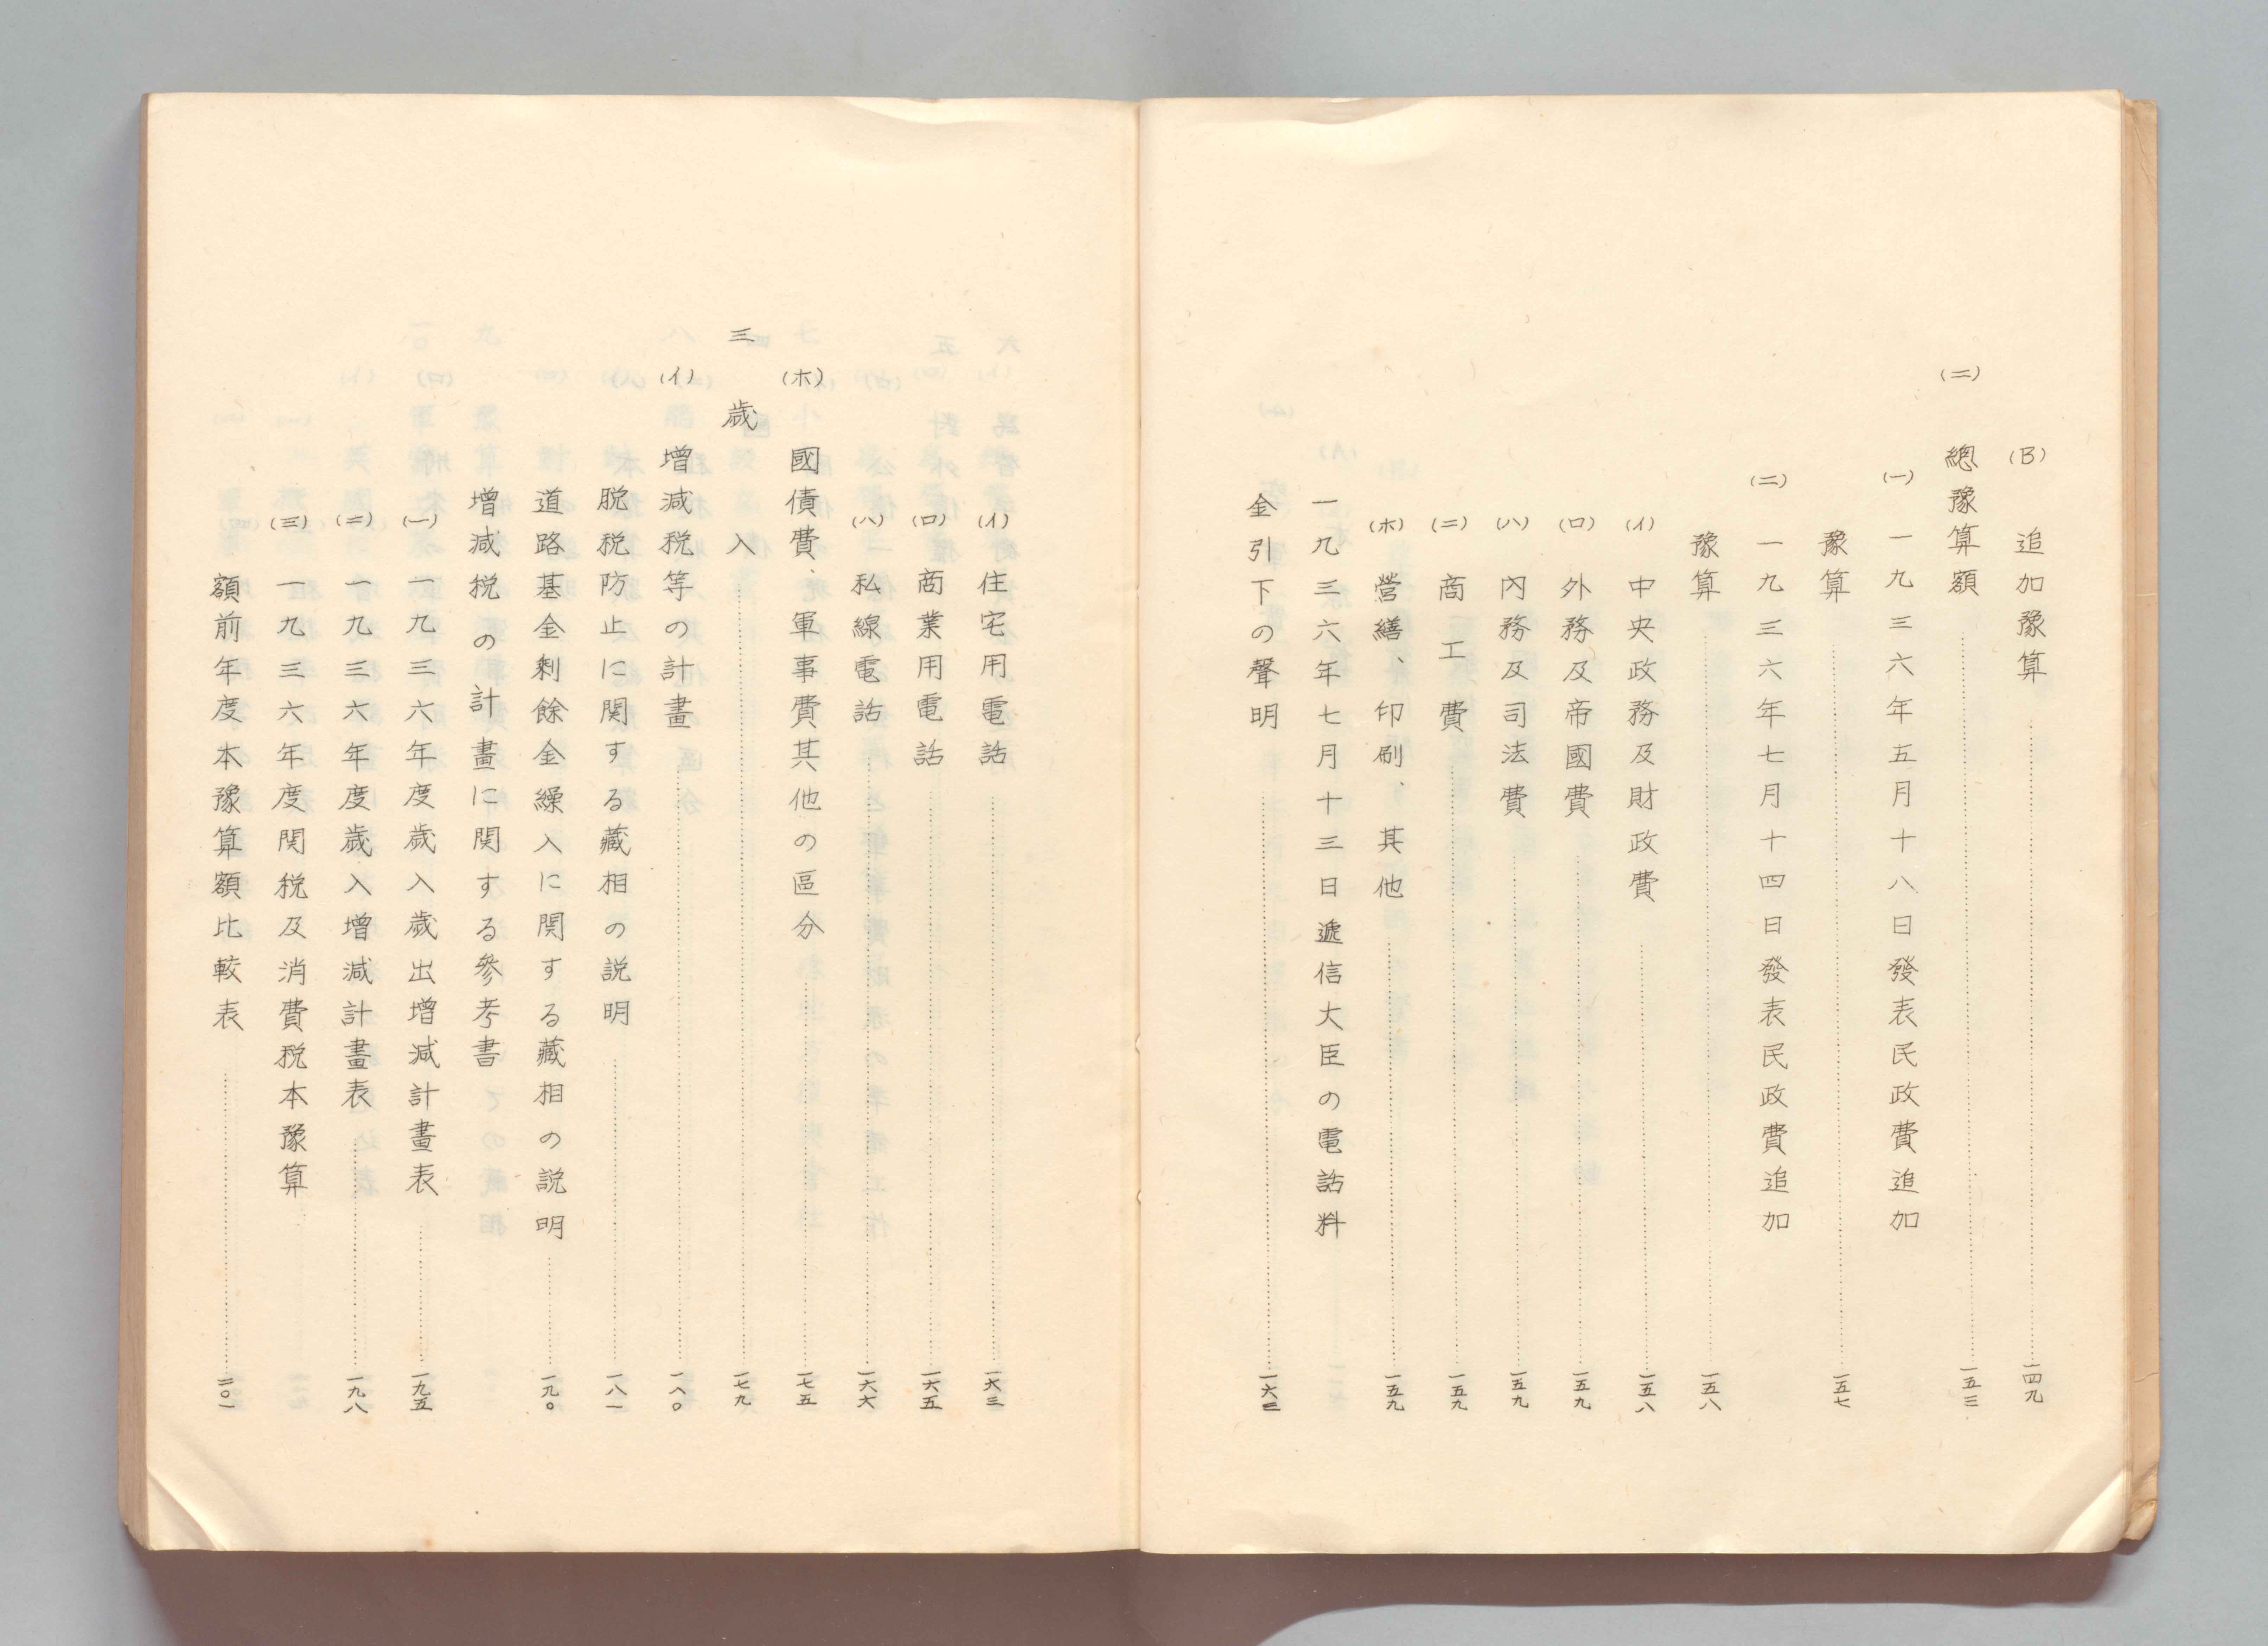 (B) 追加豫算……一四九
(二) 總豫算額……一五三
(一) 一九三六年五月十八日發表民政費追加
豫算……一五七
(二) 一九三六年七月十四日發表民政費追加
豫算……一五八
(イ) 中央政務及財政費……一五八
(ロ) 外務及帝國費……一五九
(ハ) 内務及司法費……一五九
(ニ) 商工費……一五九
(ホ) 營繕、印刷、其他……一五九
一九三六年七月十三日遞信大臣の電話料
金引下の聲明……一六三
(イ) 住宅用電話……一六三
(ロ) 商業用電話……一六五
(ハ) 私線電話……一六六
(ホ) 國債費、軍事費其他の區分……一七五
三 歳入……一七九
(イ) 增減税等の計畫……一八〇
脱税防止に関する藏相の説明……一八一
道路基金剩餘金繰入に関する藏相の説明……一九〇
增減税の計畫に関する參考書
(一) 一九三六年度歳入歳出增減計畫表……一九五
(二) 一九三六年度歳入增減計畫表……一九八
(三) 一九三六年度関税及消費税本豫算
額前年度本豫算額比較表……二〇一